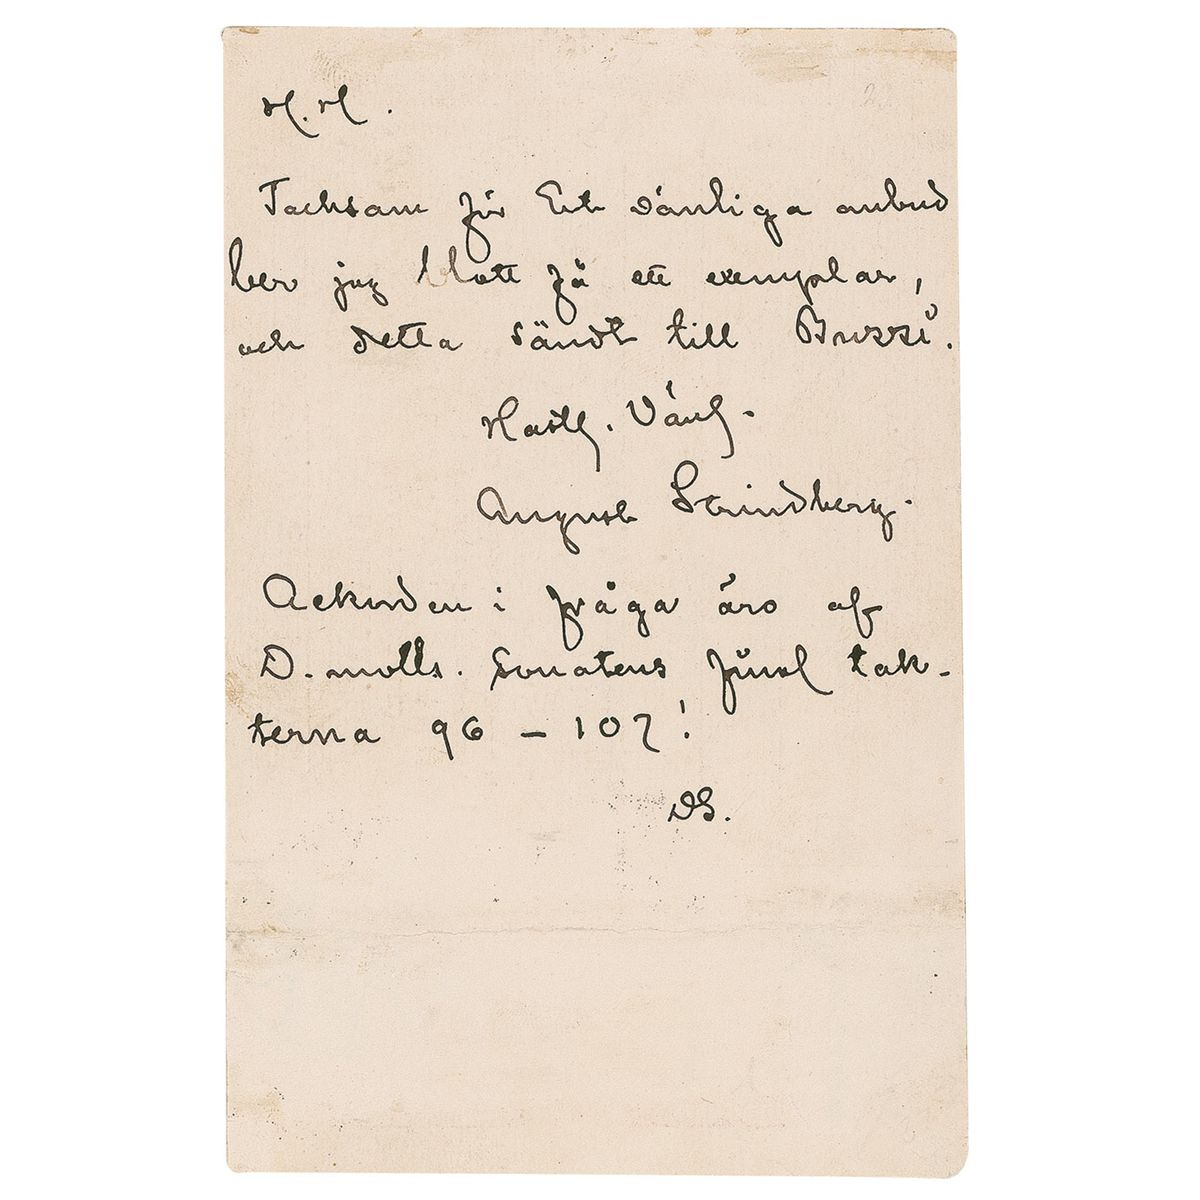 H. H.
Tacksam för Ert vänliga anbud
ber jag blott få ett exemplar,
och detta sändt till Buzzi.
Hastl. Vänl.
August Strindberg.
Ackorden i fråga äro af
D. molls. Sonatens final tak-
terna 96 – 107!
DS.